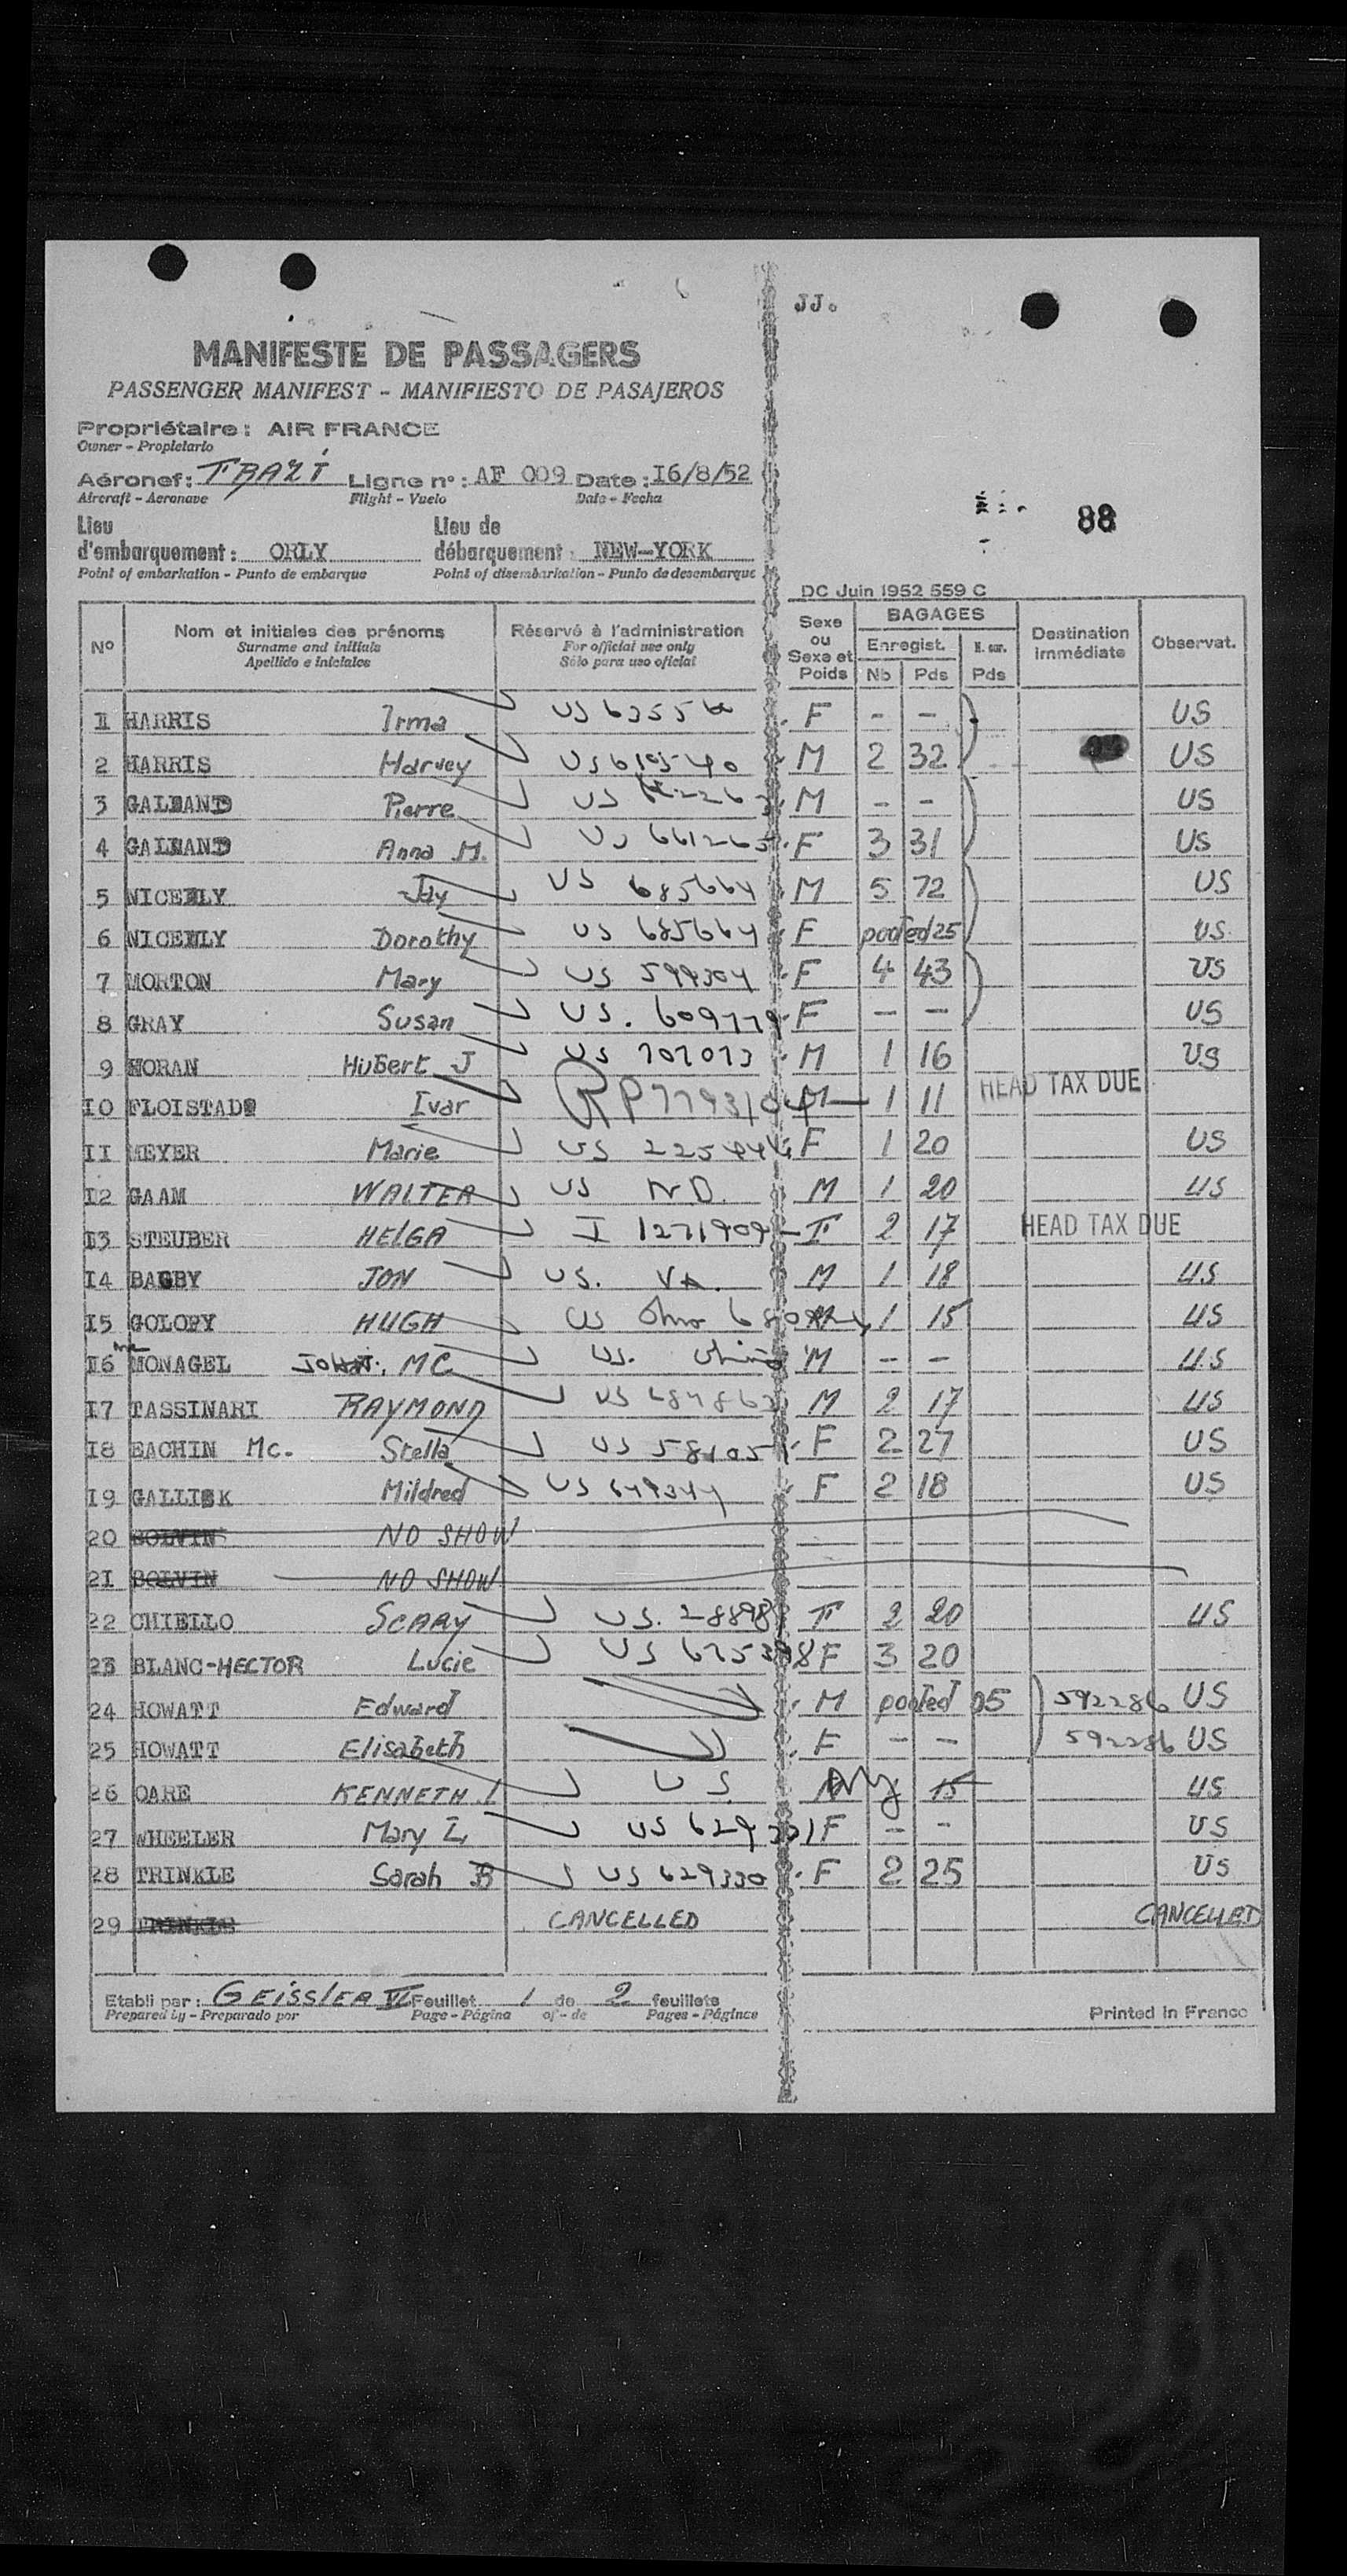 JJ.
MANIFESTE DE PASSAGERS
PASSENGER MANIFEST - MANIFIESTO DE PASAJEROS
Propriétaire: AIR FRANCE
Owner - Propietario
Aéronef: Ligne n°: AF 009 Date: I6/8/52
Aircraft - Aeronave Flight - Vuelo Date - Fecha
88
Lieu Lieu de
d'embarquement: ORLY débarquement: NEW-YORK
Point of embarkation - Punto de embarque Point of disembarkation - Punto de desembarque
DC Juin 1952 559 C
N° Nom et initiales des prénoms Réservé à l'administration Sexe ou Sexe et Poids BAGAGES Destination immédiate Observat.
Surname and initials For official use only Enregist.
Apellido e iniciales Sólo para uso oficial Nb Pds Pds
1 HARRIS Irma US F - - US
2 HARRIS Harvey US M 2 32 US
3 Pierre US M - - US
4 Anna M. US 661265 F 3 31 US
5 NICELY Jay US 685664 M 5 72 US
6 NICELY Dorothy US 685664 F pooled 25 US
7 MORTON Mary US 599304 F 4 43 US
8 GRAY Susan US. 609779 F - - US
9 HORAN Hubert J US 707073 M 1 16 US
I0 FLOISTAD Ivar M 1 11 HEAD TAX DUE
II MEYER Marie US F 1 20 US
I2 GAAM WALTER US ND. M 1 20 US
I3 STEUBER HELGA I F 2 17 HEAD TAX DUE
I4 BAGBY JON US. VA. M 1 18 US
I5 GOLOBY HUGH US M 1 15 US
I6 MONAGEL MC US. M - - US
I7 TASSINARI RAYMOND US M 2 17 US
I8 EACHIN Mc. Stella US F 2 27 US
I9 GALLICK Mildred US F 2 18 US
20 BOLVIN NO SHOW
2I BOLVIN NO SHOW
22 CHIELLO US. F 2 20 US
23 BLANC-HECTOR Lucie US F 3 20
24 HOWATT Edward M pooled 592286 US
25 HOWATT Elisabeth F - - 592286 US
26 OARE KENNETH US NY 15 US
27 WHEELER Mary L, US F - - US
28 TRINKLE Sarah B US 629330 F 2 25 US
29 TRINKLE CANCELLED CANCELLED
Etabli par: GEISSLER Feuillet 1 de 2 feuillets
Prepared by - Preparado por Page - Página of - de Pages - Páginas
Printed in France